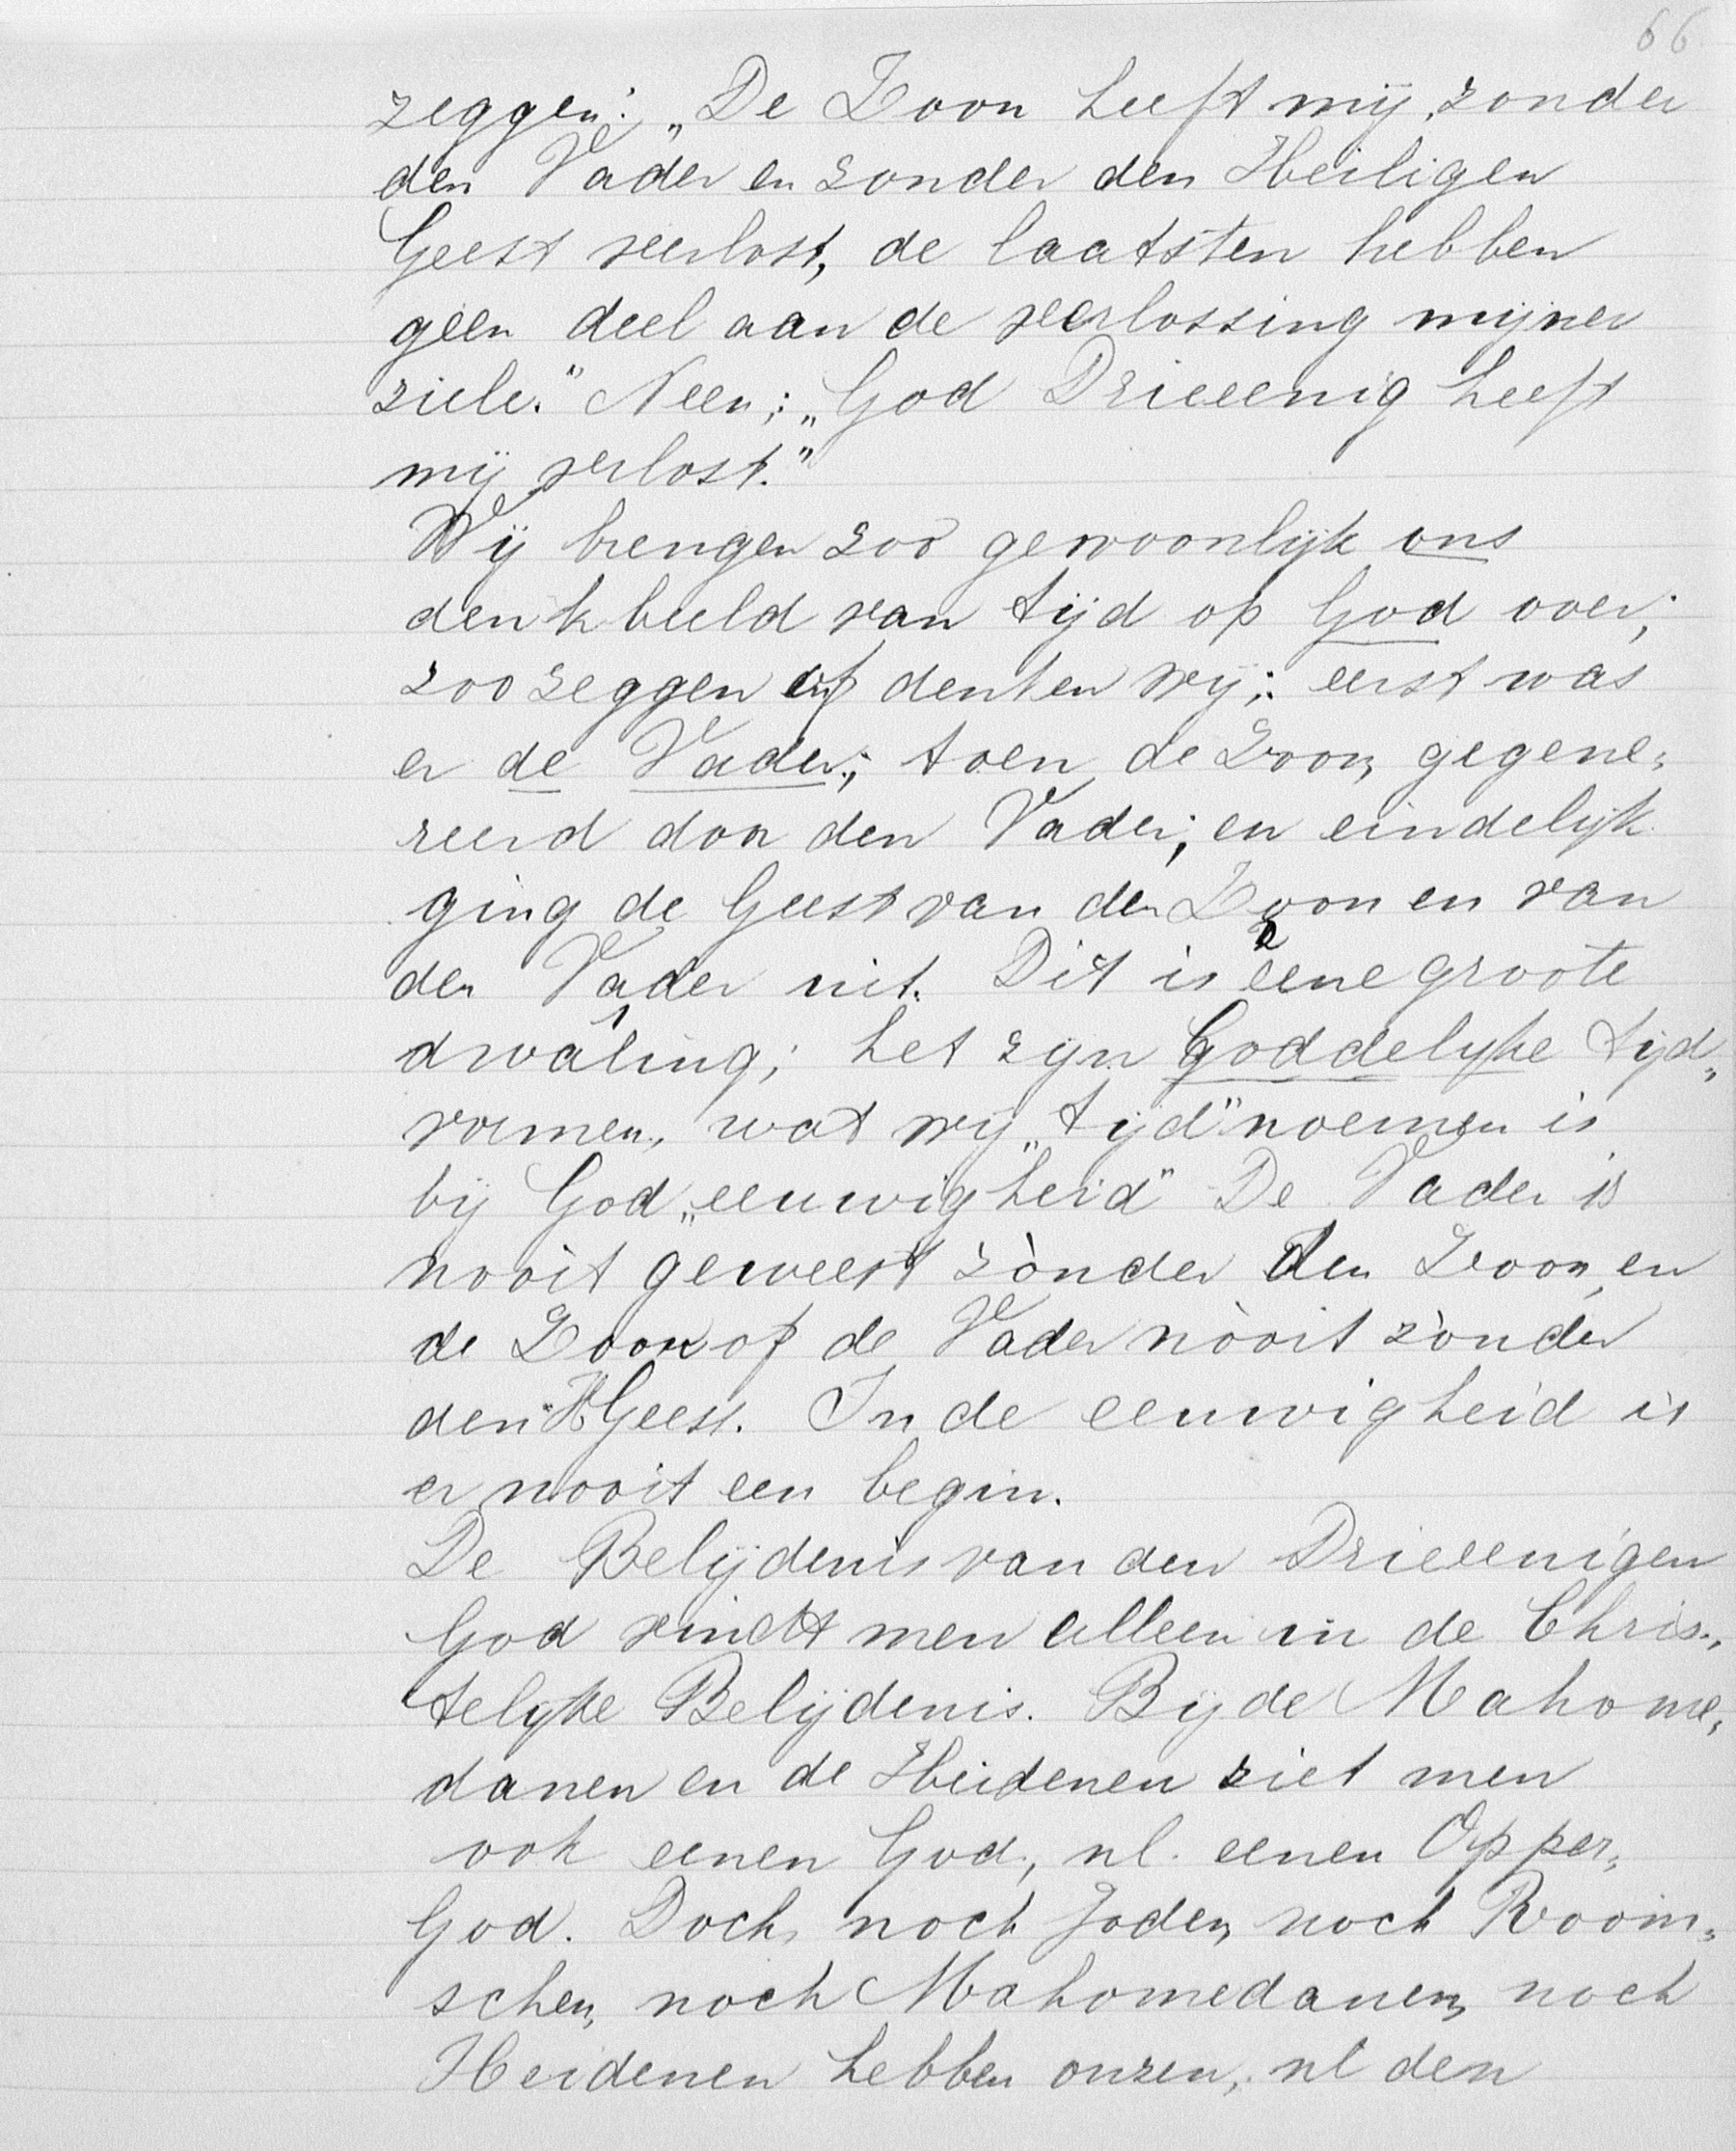 66
zeggen: „De Zoon heeft mij, zonder
den Vader en zonder den Heiligen
Geest verlost, de laatsten hebben
geen deel aan de verlossing mijner
ziele." Neen; „God Drieeenig heeft
mij verlost."
Wij brengen zoo gewoonlijk ons
denkbeeld van tijd op God over;
zoo zeggen of denken wij: eerst was
er de Vader; toen de Zoon, gegene=
reerd door den Vader; en eindelijk
ging de Geest van den Zoon en van
den Vader uit. Dit is eene groote
dwaling; het zijn Goddelijke tijd„
vormen, wat wij „tijd" noemen is
bij God „eeuwigheid" De Vader is
nooit geweest zònder den Zoon, en
de Zoon of de Vader nòoit zònder
den H Geest. In de eeuwigheid is
er nooit een begin.
De Belijdenis van den Drieeenigen
God vindt men alleen in de Chris„
telijke Belijdenis. Bij de Mahome„
danen en de Heidenen ziet men
ook eenen God, nl. eenen Opper„
God. Doch, noch Joden, noch Room„
schen, noch Mahomedanen, noch
Heidenen hebben onzen, nl den